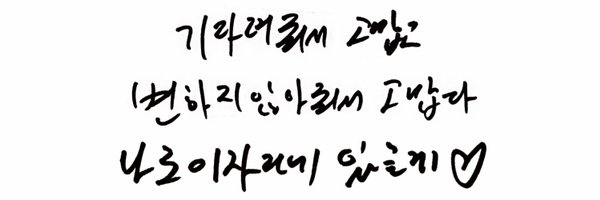 기다려줘서 고맙고
변하지않아줘서 고맙다
나도이자리에 있을게♡